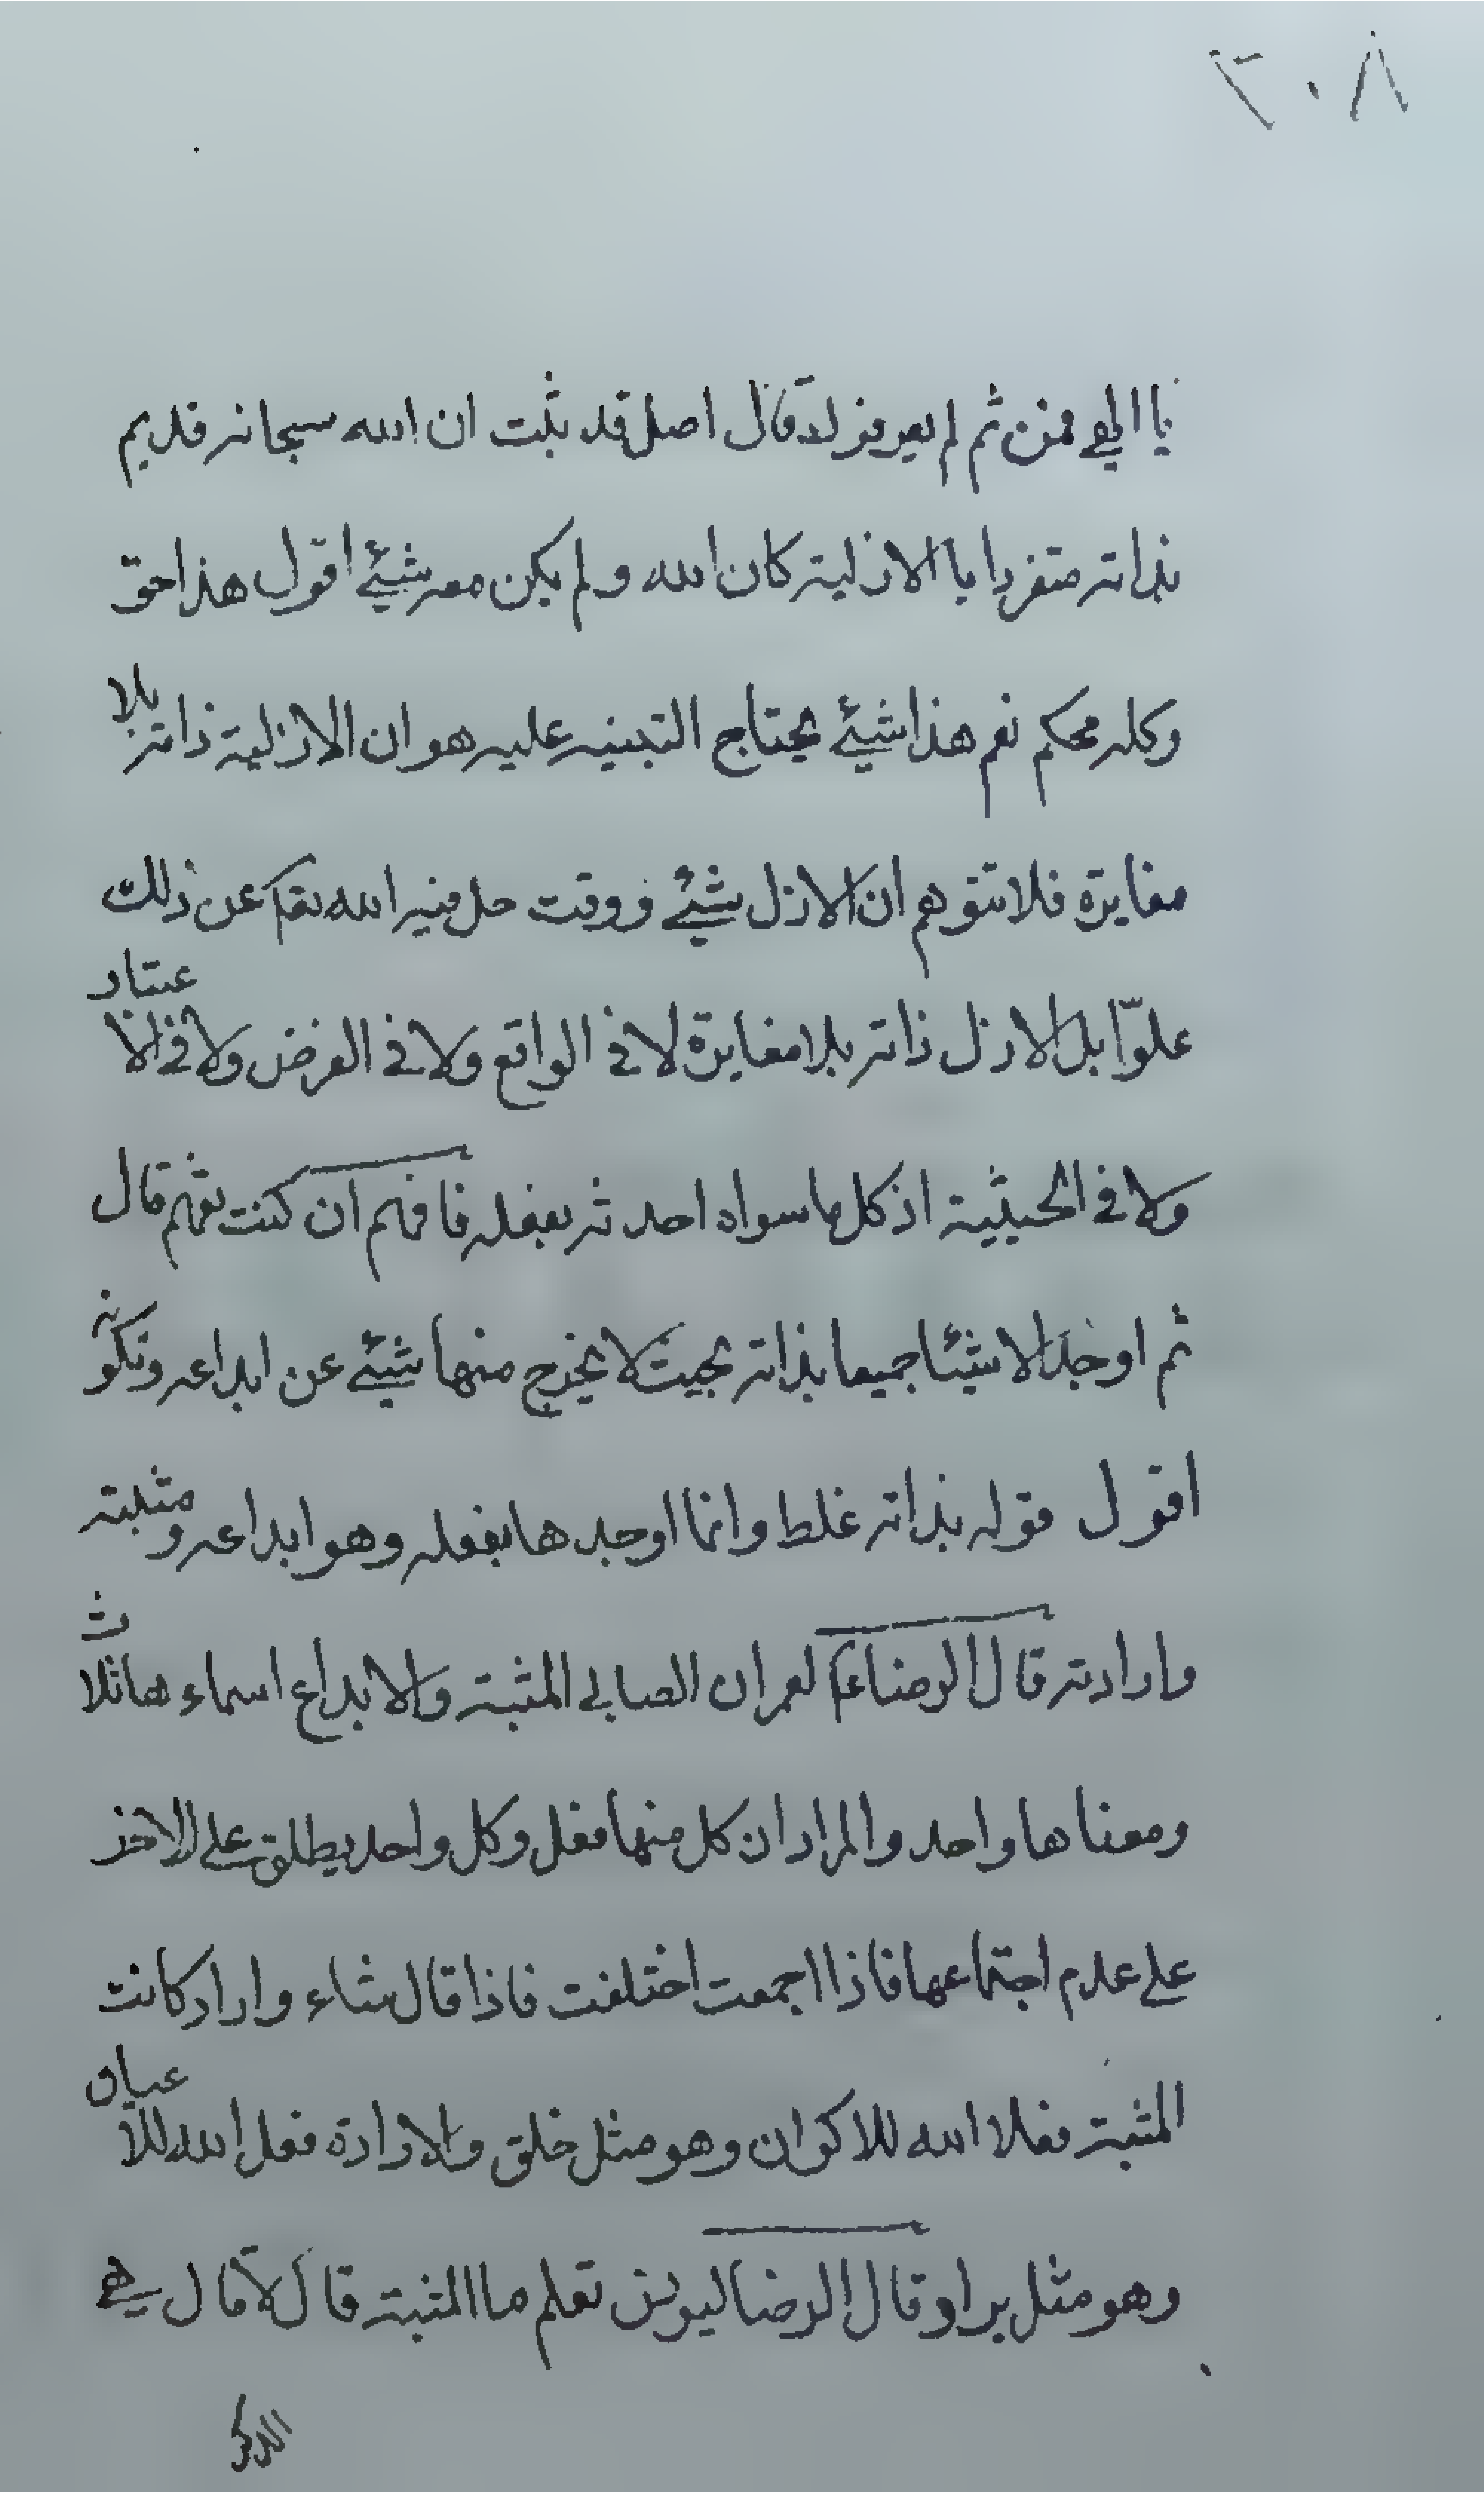 ٢٠٨
يا الهي فمن ثم لم يعرفوك قال اصل قد ثبت ان الله سبحانه قديم
بذاته متفردا باالازلية كان الله ولم يكن معه شيئ اقول هذا حق
وكله محكم نعم هذا شيئ يحتاج التبينه عليه هو ان الازلية ذاته بلا
مغايرة فلا تتوهم ان الازل شيئ ووقت حل فيه الله تعا عن ذلك
علوّا بل الازل ذاته بلا مغايرة لا في الواقع ولا في الفرض ولا في الاعتبار
ولا في الحيثية اذ كل ما سواه احدثه بفعله فافهم ان كنت تفهم قال
ثم اوجد الاشيئا جميعا بذاته بحيث لا يخرج منها شيئ عن ابداعه وتكوينه
اقول قوله بذاته غلط وانما اوجدها بفعله وهو ابداعه ومشيته
وارادته قال الرضا ع لعمران الصابي المشية والابداع اسماءها ثلاث
ومعناها واحد والمراد ان كل منها فعل وكل واحد يطلق على الاخر
على عدم اجتماعها فاذا اجمعت اختلفت فاذا قال شاء واراد كانت
المشية فعلا الله للاكوان وهو مثل خلق والارادة فعل الله للاعيان
وهو مثل برا وقال الرضا ليونس تعلم ما المشية قال لا قال هي
الذكر